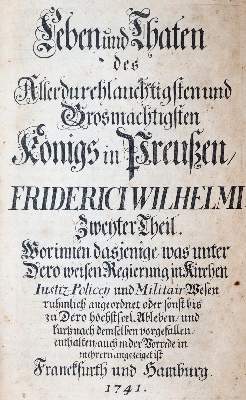 Leben und Thaten
des
Allerdurchlauchtigsten und
Grosmächtigsten
Königs in Preußen,
FRIDERICI WILHELMI
Zweyter Theil.
Worinnen dasjenige was unter
Dero weisen Regierung in Kirchen
Justiz Policey und Militair Wesen
rühmlich angeordnet oder sonst bis
zu Dero höchstseel. Ableben, und
kurtz nach demselben vorgefallen,
enthalten, auch in der Vorrede ein
mehrers angezeiget ist
Franckfurth und Hamburg.
1741.